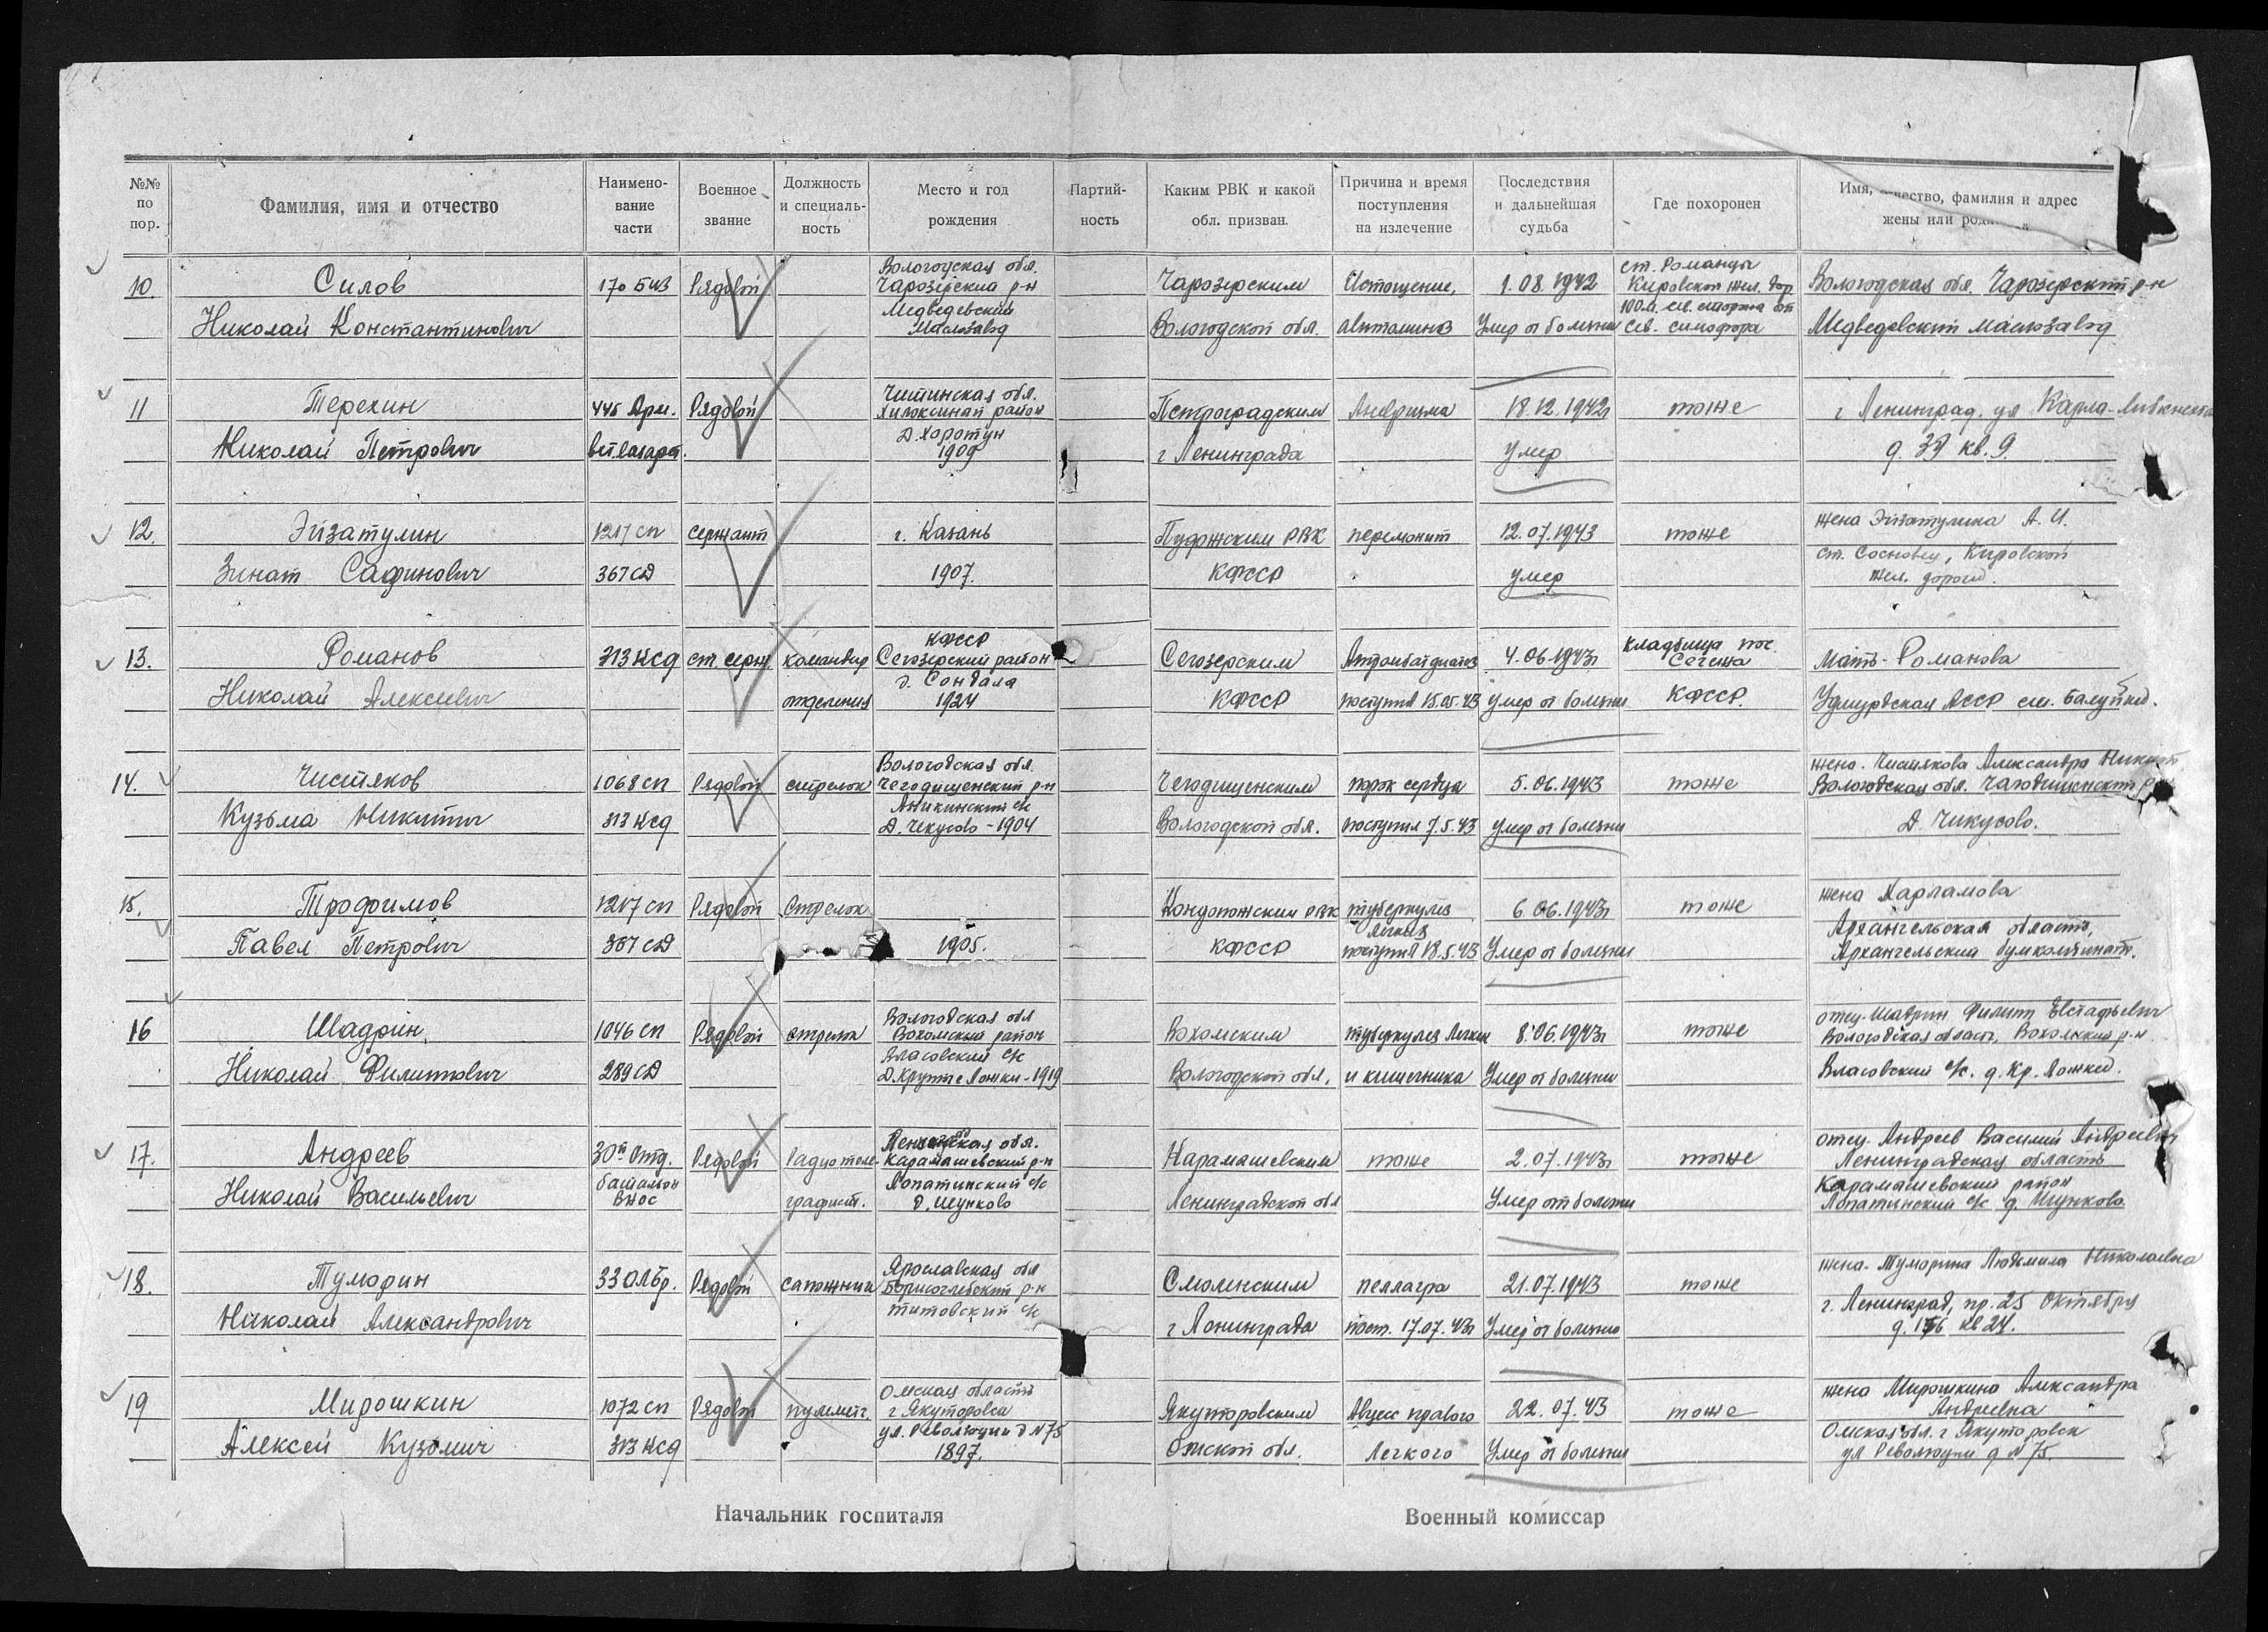 №№ по пор.
Фамилия, имя и отчество
Наимено-вание части
Военное звание
Должность и специаль-ность
Место и год рождения
Партий-ность
Каким РВК и какой обл. призван.
Причина и время поступления на излечение
Последствия и дальнейшая судьба
Где похоронен
Имя, фамилия и адрес жены или
10.
Силов
Николай Константинович
Рядовой
Вологодская обл.
Чарозерский р-н
Медведевский
Маслозавод
Чарозерским
Вологодской обл.
Истощение,
авитаминоз
1.08.1942
Умер от болезни
Кировской жел. дор
Вологодская обл. Чарозерский р-н
Медведевский маслозавод
11
Терехин
Николай Петрович
Рядовой
Читинская обл.
район
1909
Петроградским
г Ленинграда
18.12.1942г
умер
тоже
г Ленинград. ул Карла-Либкнехта
д. 39 кв. 9.
12.
Эйзатулин
Зинат Сафинович
1217 сп
367 СД
сержант
г. Казань
1907.
Пудожским РВК
КФССР
12.07.1943
умер
тоже
жена Эйзатулина А. И.
ст. Сосновец, Кировской
жел. дороги.
13.
Романов
Николай Алексеевич
313 КСД
ст. серж.
командир
отделения
КФССР
Сегозерский район
д. Сондала
1924
Сегозерским
КФССР
поступил 15.05.43
4.06.1943г
Умер от болезни
кладбище пос.
Сегежа
КФССР.
Мать-Романова
14.
Чистяков
Кузьма Никитич
1068 сп
313 КСД
Рядовой
стрелок
Вологодская обл.
Чегодищенский р-н
Аникинский с/с
Д. Чекусово - 1904
Чегодищенским
Вологодской обл.
порок сердца
поступил 7.5.43
5.06.1943
умер от болезни
тоже
жена. Чистякова Александра
Вологодская обл.
Д. Чикусово.
15.
Трофимов
Павел Петрович
1217 сп
367 СД
Рядовой
Стрелок
1905.
Кондопожским РВК
КФССР
туберкулез
легких
поступил 18.5.43
6.06.1943г
Умер от болезни
тоже
жена Харламова
Архангельская область,
Архангельский бумкомбинат.
16
Шадрин
Николай Филиппович
1046 сп
289 СД
Рядовой
стрелок
Вологодская обл
Вохомский район
Власовский с/с
Д. Крутые Ложки - 1919
Вохомским
Вологодской обл.
туберкулез легких
и кишечника
8.06.1943г
Умер от болезни
тоже
отец-Шадрин Филипп Евстафьевич
Вологодская область, Вохомский р-н
Власовский с/с. д. Кр. Ложки.
17.
Андреев
Николай Васильевич
30й Отд.
батальон
ВНОС
Рядовой
Радиотеле-
графист.
обл.
Карамышевский р-н
Лопатинский с/с
д. Шунково
Карамышевским
Ленинградской обл
тоже
2.07.1943г
Умер от болезни
тоже
отец. Андреев Василий Андреевич
Ленинградская область
Карамышевский район
Лопатинский с/с д. Шунково
18.
Туморин
Николай Александрович
33 ОЛБр.
Рядовой
сапожник
Ярославская обл
Борисоглебский р-н
Титовский с/с
Смоленским
г Ленинграда
пеллагра
пост. 17.07.43г
21.07.1943
Умер от болезни
тоже
жена-Туморина Людмила Николаевна
г. Ленинград, пр. 25 Октября
кв 24.
19
Мирошкин
Алексей Кузьмич
1072 сп
313 КСД
Рядовой
пулеметч.
Омская область
г Якуторовск
ул. Революции д N 75
1897.
Якуторовским
Омской обл.
Абцесс правого
Легкого
22.07.43
Умер от болезни
тоже
жена Мирошкина Александра
Андреевна
Омская обл. г Якуторовск
ул Революции д N 75.
Начальник госпиталя
Военный комиссар